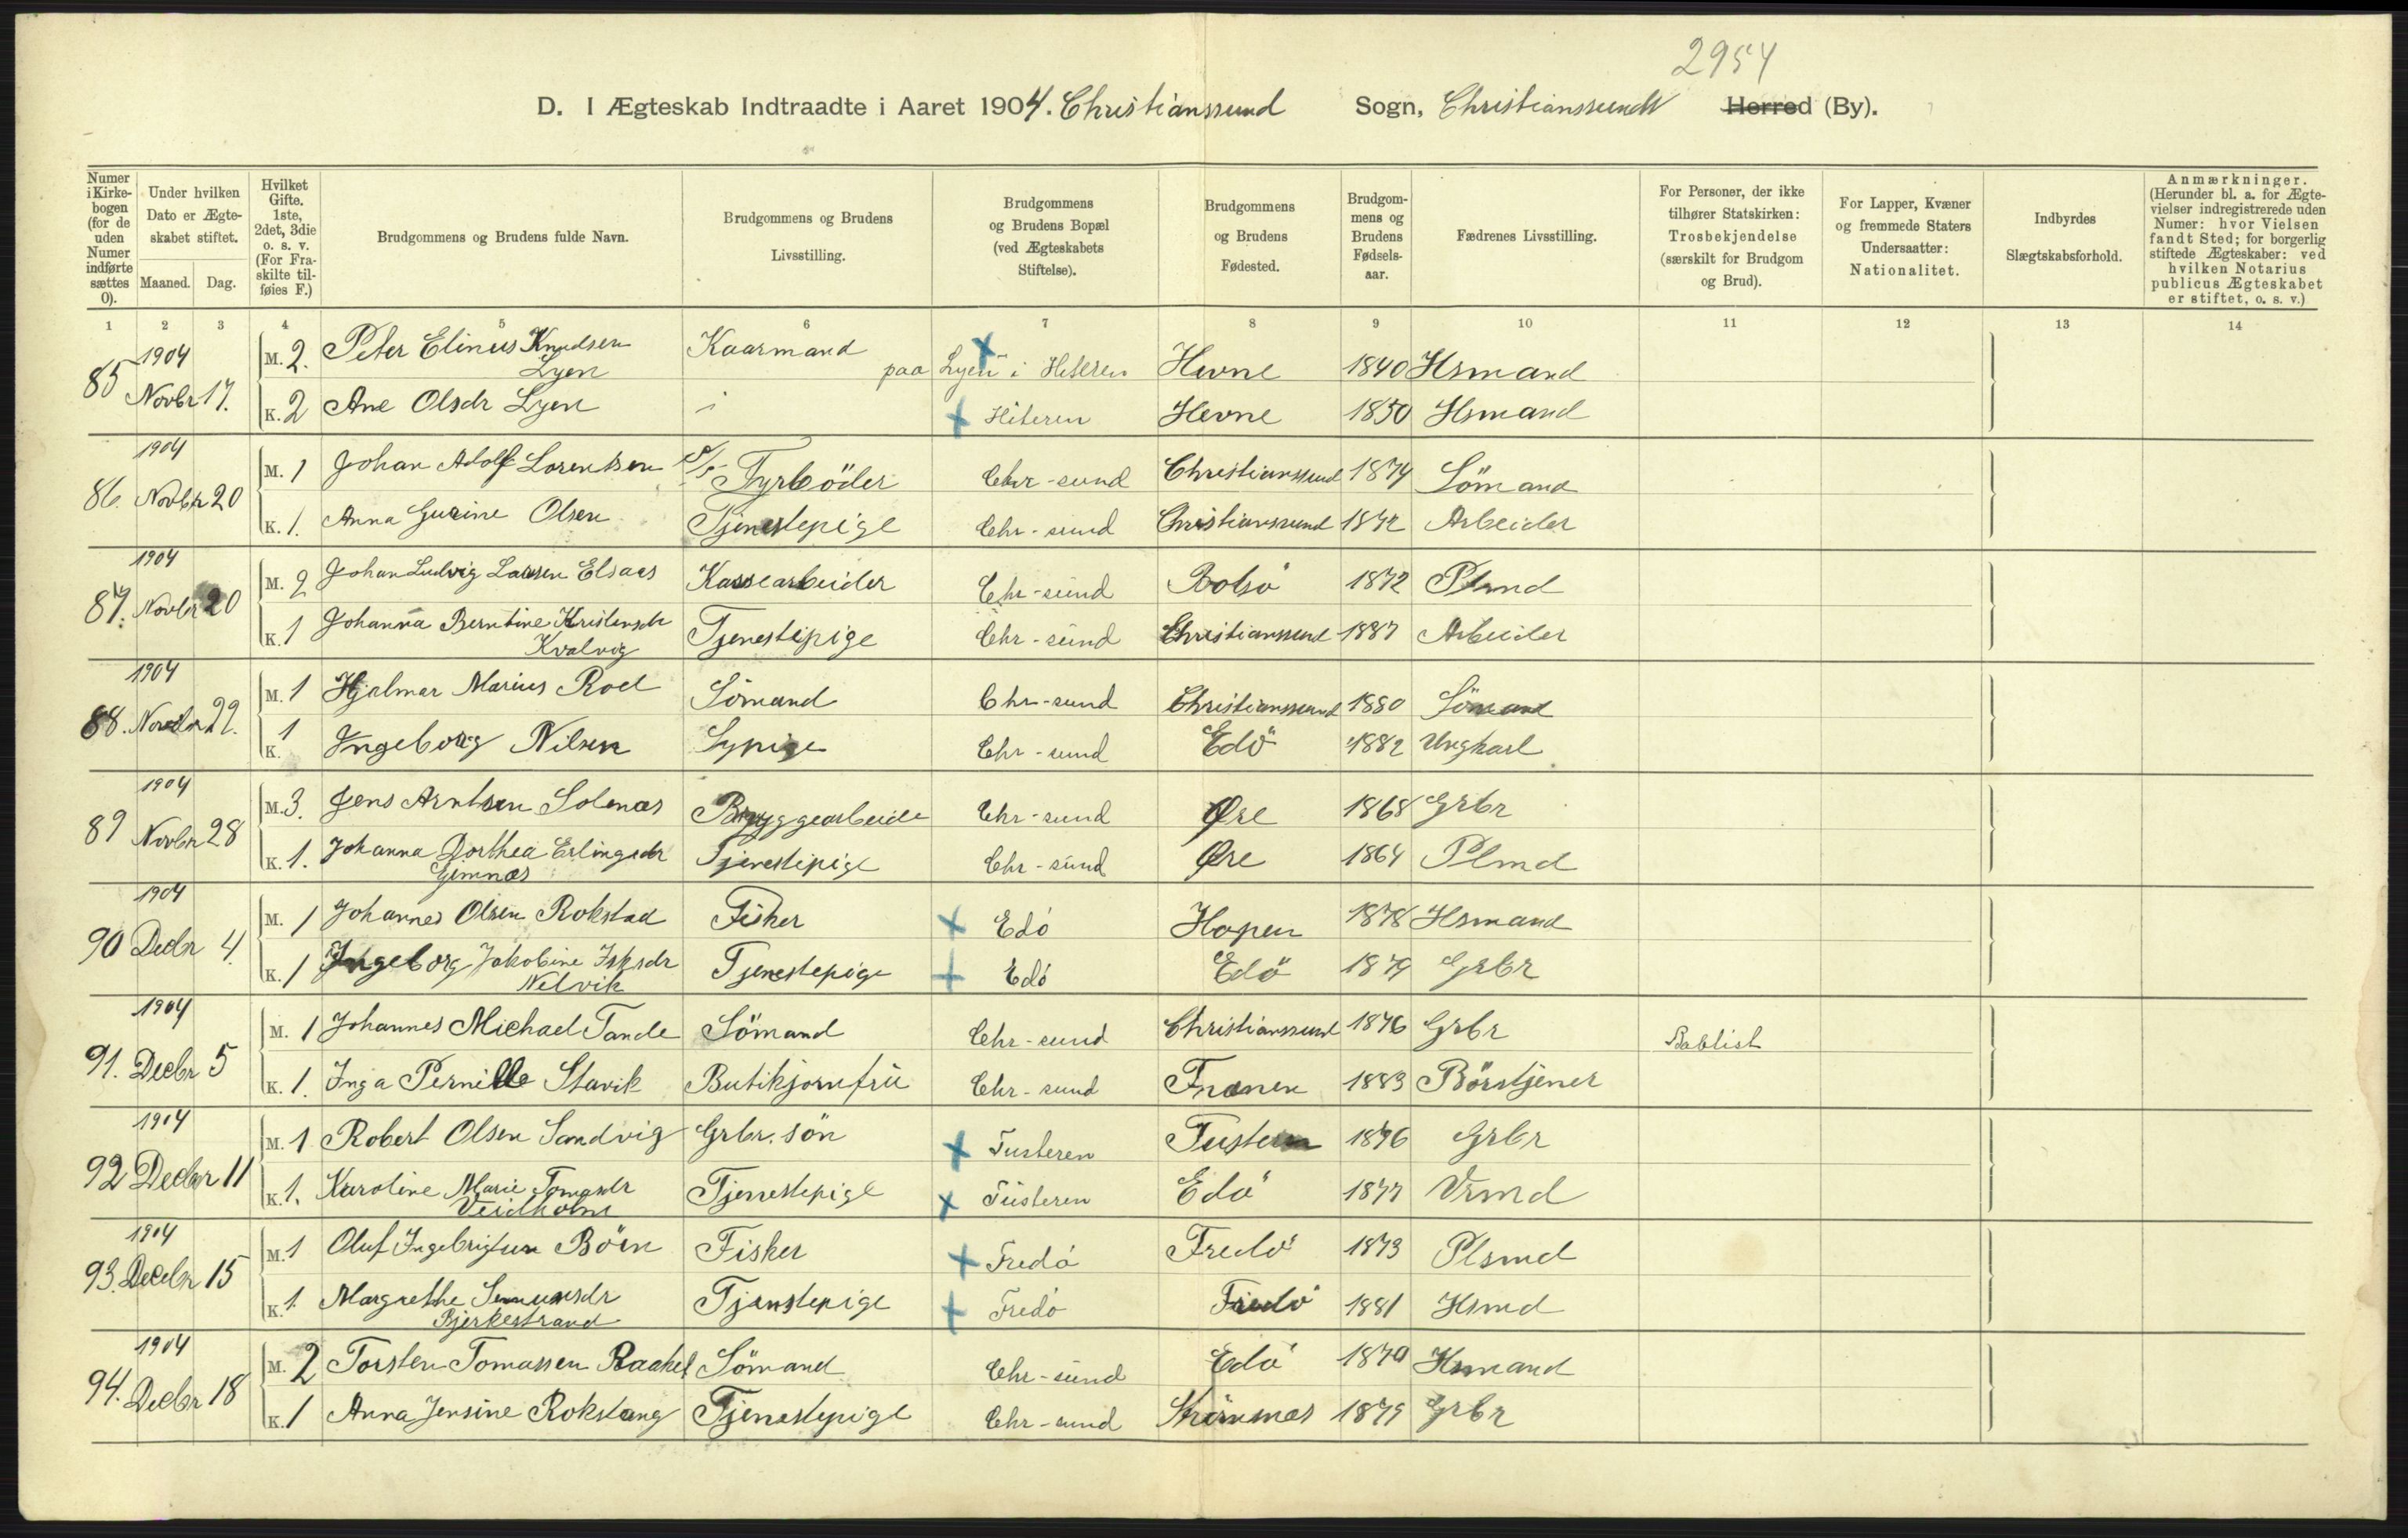 2954
D. I Ægteskab Indtraadte i Aaret 1904. Christianssund Sogn, Christianssunds Herred (By).
Numer i Kirkebogen (for de uden Numer indførte sættes 0).
Under hvilken Dato er Ægteskabet stiftet. Maaned. Dag.
Hvilket Gifte. 1ste, 2det, 3die o. s. v. (For Fraskilte tilføies F.)
Brudgommens og Brudens fulde Navn.
Brudgommens og Brudens Livsstilling.
Brudgommens og Brudens Bopæl (ved Ægteskabets Stiftelse).
Brudgommens og Brudens Fødested.
Brudgommens og Brudens Fødselsaar.
Fædrenes Livsstilling.
For Personer, der ikke tilhører Statskirken: Trosbekjendelse (særskilt for Brudgom og Brud).
For Lapper, Kvæner og fremmede Staters Undersaatter: Nationalitet.
Indbyrdes Slægtskabsforhold.
Anmærkninger. (Herunder bl. a. for Ægtevielser indregistrerede uden Numer: hvor Vielsen fandt Sted; for borgerlig stiftede Ægteskaber: ved hvilken Notarius publicus Ægteskabet er stiftet, o. s. v.)
1 2 3 4 5 6 7 8 9 10 11 12 13 14
85 1904 Novbr 17. M. 2. Peter Elinus Knudsen Lyen Kaarmand paa Lyen i Hiteren Hevne 1840 Hsmand
K. 2 Ane Olsdr Lyen Hiteren Hevne 1850 Hsmand
86. 1904 Novbr 20 M. 1 Johan Adolf Lorentsen Fyrböder Chr-sund Christianssund 1874 Sömand
K. 1. Anna Gurine Olsen Tjenestepige Chr-sund Christianssund 1872 Arbeider
87. 1904 Novbr 20 M. 2 Johan Ludvig Larsen Elsaas Kassearbeider Chr-sund Bolsö 1872 Plsmd
K. 1 Johanna Berntine Kristensdr Kvalvig Tjenestepige Chr-sund Christianssund 1887 Arbeider
88. 1904 Novbr 22. M. 1 Hjalmar Marius Roel Sömand Chr-sund Christianssund 1880 Sömand
K. 1 Ingeborg Nilsen Sypige Chr-sund Edö 1882 Ungkarl
89 1904 Novbr 28 M. 3. Jens Arntsen Solenæs Bryggearbeide Chr-sund Øre 1868 Grbr
K. 1. Johanna Dorthea Erlingsdr Gimnæs Tjenestepige Chr-sund Øre 1864 Plmd
90 1904 Decbr 4. M. 1 Johannes Olsen Rokstad Fisker Edö Hopen 1878 Hsmand
K. 1 Ingeborg Jakobine Isksdr Nelvik Tjenestepige Edö Edö 1879 Grbr
91. 1904 Decbr 5 M. 1 Johannes Michael Tande Sömand Chr-sund Christianssund 1876 Grbr Babtist
K. 1. Inga Pernille Stavik Butikjomfru Chr-sund Frænen 1883 Börstjener
92 1904 Decbr 11 M. 1 Robert Olsen Sandvig Grbr. sön Tusteren Tusteren 1876 Grbr
K. 1. Karoline Marie Tomasdr Veidholm Tjenestepige Tusteren Edö 1877 Vrmd
93. 1904 Decbr 15 M. 1 Oluf Ingebrigtsen Böen Fisker Fredö Fredö 1873 Plsmd
K. 1. Margrethe Bjerkestrand Tjenstepige Fredö Fredö 1881 Hsmd
94. 1904 Decbr 18 M. 2 Torsten Tomassen Raaket Sömand Chr-sund Edö 1870 Hsmand
K. 1 Anna Jensine Rokstang Tjenestepige Chr-sund 1879 Grbr